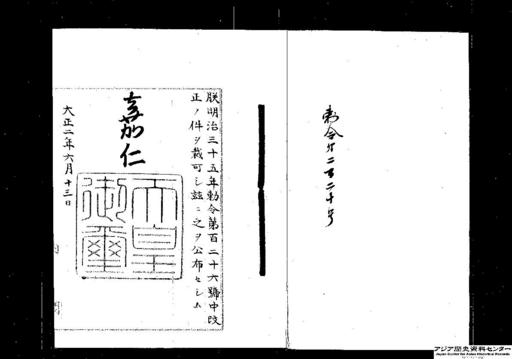 勅令第二百二十号
朕明治三十五年勅令第百二十六號中改
正ノ件ヲ裁可シ茲ニ之ヲ公布セシム
嘉仁
天皇
御璽
大正二年六月十三日
アジア歴史資料センター
Japan Center for Asian Historical Records